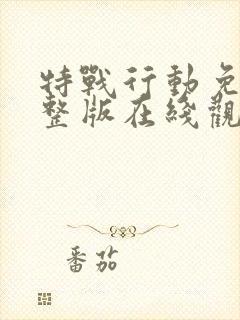 特戰行動免
整版在綫觀
番茄